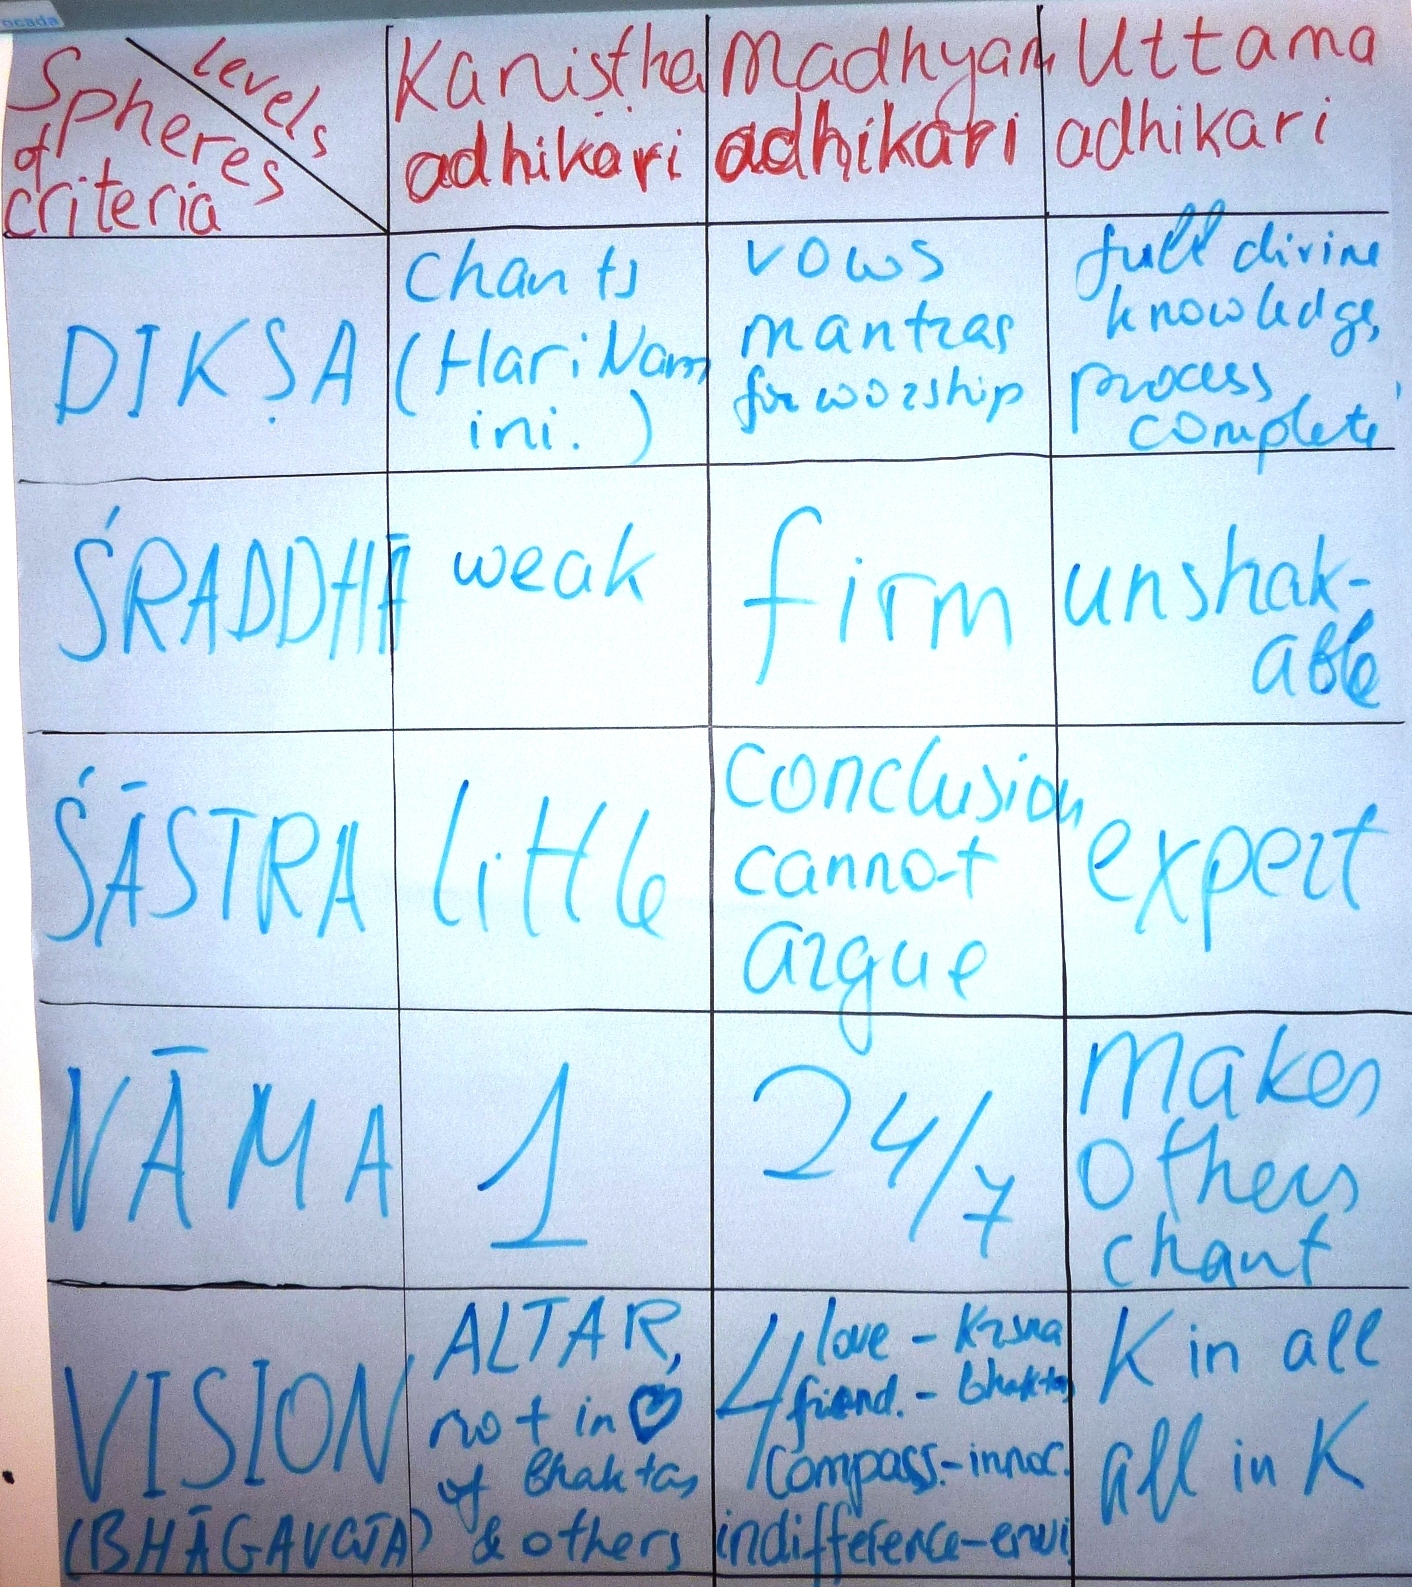 ocada
Levels
Spheres
of
criteria
Kaniṣṭha
adhikari
Madhyam
adhikari
Uttama
adhikari
DIKṢA
Chants
(HariNam
ini.)
vows
mantras
for worship
full divine
knowledge,
process
complete
ŚRADDHĀ
weak
firm
unshak-
able
ŚĀSTRA
little
conclusion
cannot
argue
expert
NĀMA
1
24/7
makes
others
chant
VISION
(BHĀGAVATA)
ALTAR,
not in ♡
of Bhaktas
& others
4
love - Krsna
friend. - bhaktas
compass. - innoc.
indifference - envi
K in all
all in K